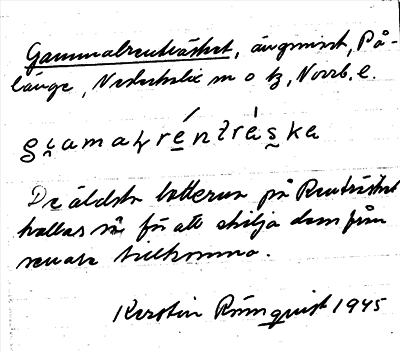 Gammalrenträsket, ängsmark, På-
länge, Nederkalix m o tg, Norrb. l.
De äldsta lotterna på Renträsket
kallas så för att skilja dem från
senare tillkomna.
Kerstin Rönnquist 1945